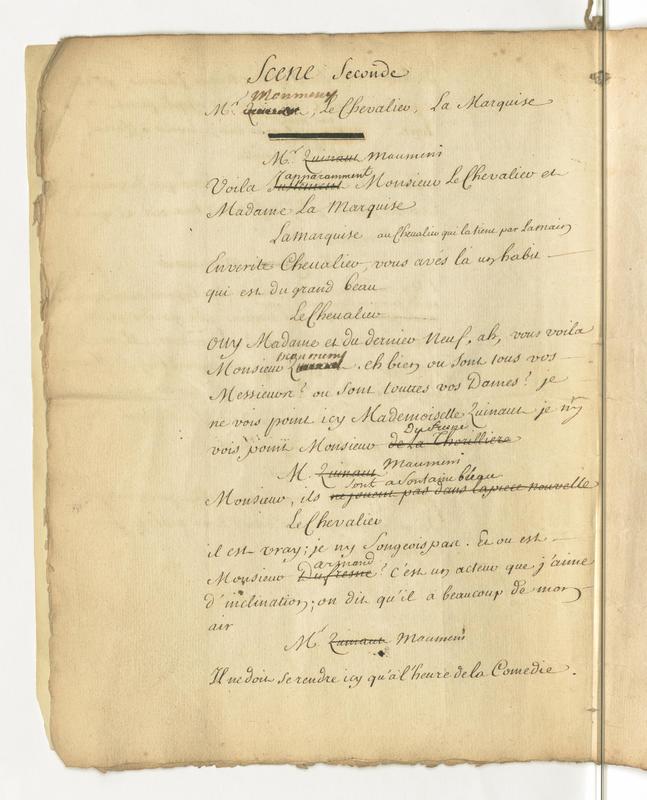 Scene Seconde
Monmeny
Mr. Quinaut, Le Chevalier, La Marquise
Mr. Quinaut Maumeni
apparamment
Voila Justement Monsieur Le Chevalier et
Madame La Marquise
Lamarquise au Chevalier qui la tient par Lamain
Enverité Chevalier, vous avés là un habit
qui est du grand beau
Le Chevalier
Ouy Madame et du dernier neuf. ah, vous voila
maumeni
Monsieur Quinaut. eh bien ou sont tous vos
Messieurs? ou sont touttes vos Dames? je
ne vois point icy Mademoiselle Quinaut je n'y
Du fresne
vois point Monsieur de La Thorilliere
M. Quinaut Maumeni
sont a fontainebleau
Monsieur, ils ne jouent pas dans lapiece nouvelle
Le Chevalier
il est vray; je ny Songeois pas. Et ou est
armand
Monsieur Dufresne? C'est un acteur que j'aime
d'inclination; on dit qu'il à beaucoup de mon
air
Mr. Quinaut Maumeni
Il ne doit se rendre icy qu'à l'heure de la Comedie.